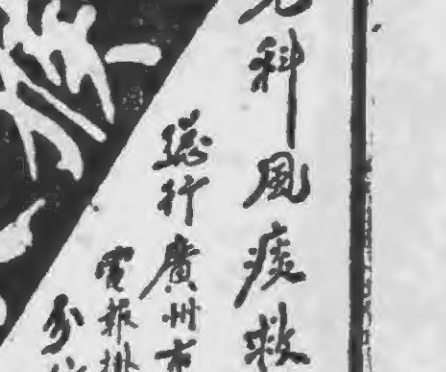 科風痰救
總行廣州市
電報掛
分